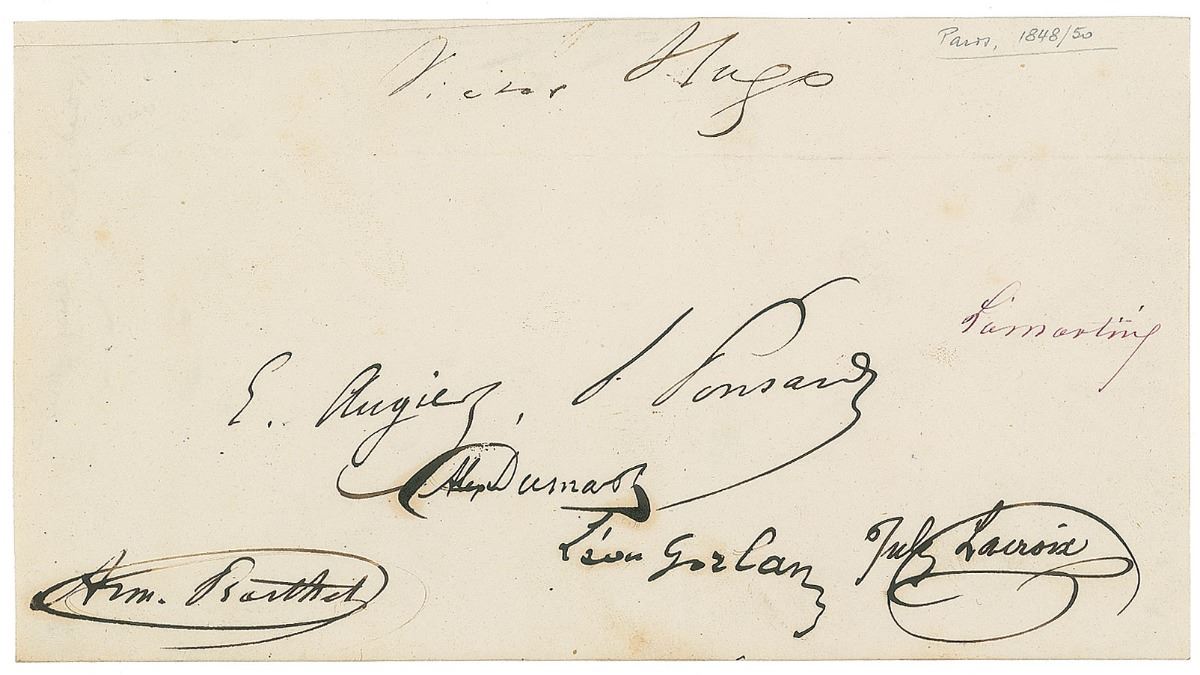 Paris, 1848/50
Victor Hugo
Lamartine
E. Augier, F. Ponsard
Alex Dumas
Léon Gozlan
Jules Lacroix
Arm. Barthet